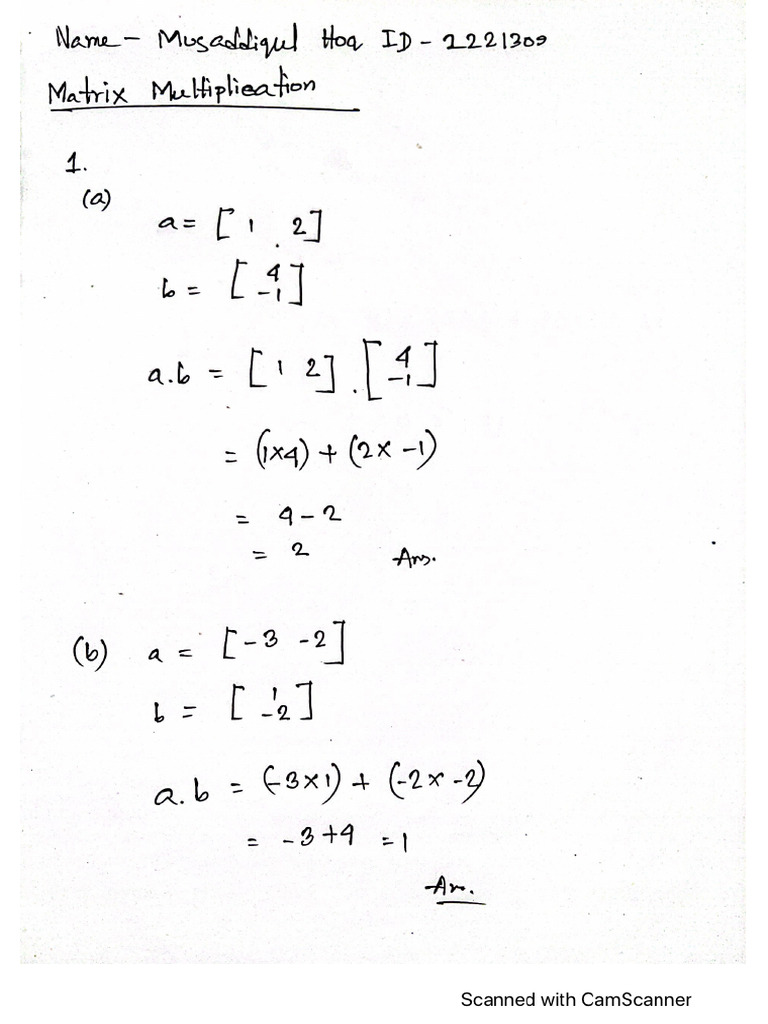 Name - Musaddiqul Hoq ID - 2221309
Matrix Multiplication
1.
(a)
a = [ 1 2 ]
b = [ 4
-1 ]
a.b = [ 1 2 ] . [ 4
-1 ]
= (1×4) + (2× -1)
= 4 - 2
= 2 Ans.
(b) a = [ -3 -2 ]
b = [ 1
-2 ]
a.b = (-3×1) + (-2× -2)
= -3+4 = 1
An.
Scanned with CamScanner